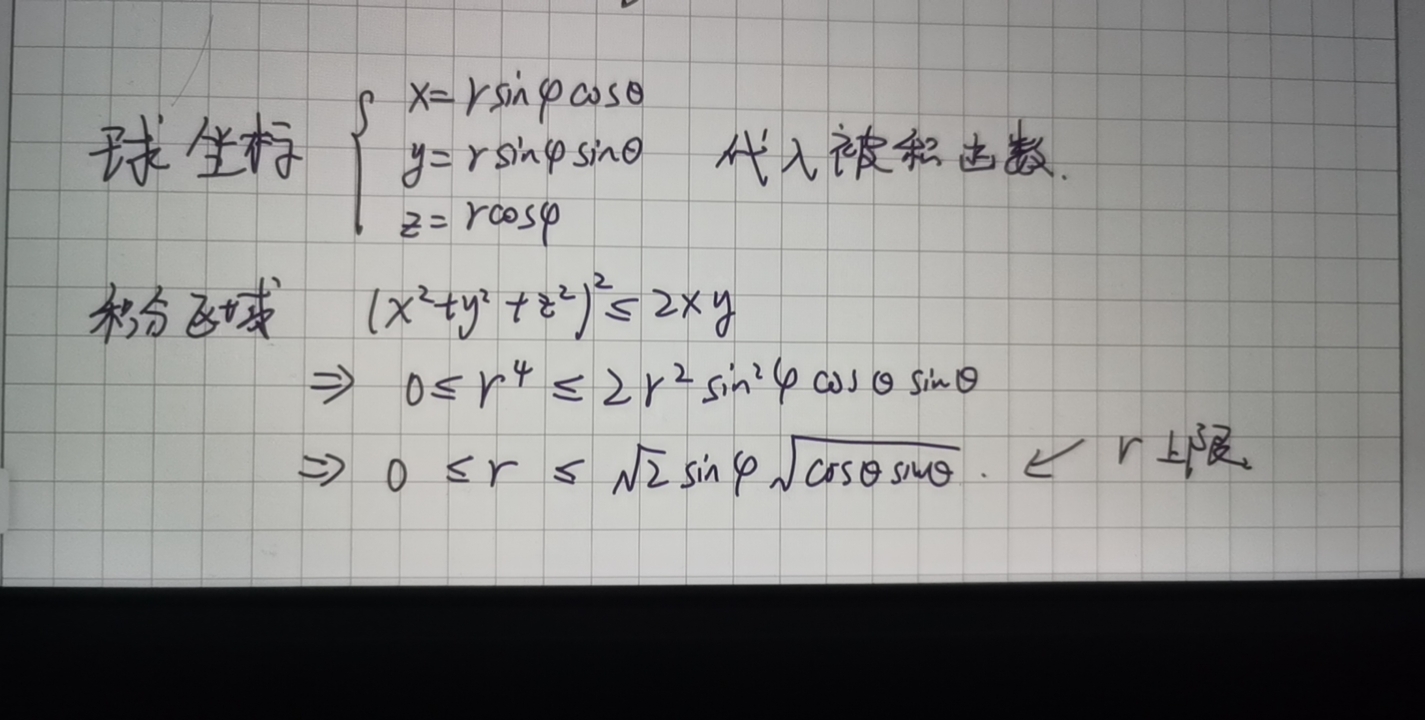 球坐标 { x=rsinφcosθ
y=rsinφsinθ 代入被积函数.
z=rcosφ
积分区域 (x²+y²+z²)²≤2xy
⇒ 0≤r⁴≤2r²sin²φcosθsinθ
⇒ 0≤r≤√2sinφ√cosθsinθ. ↙ r上限.